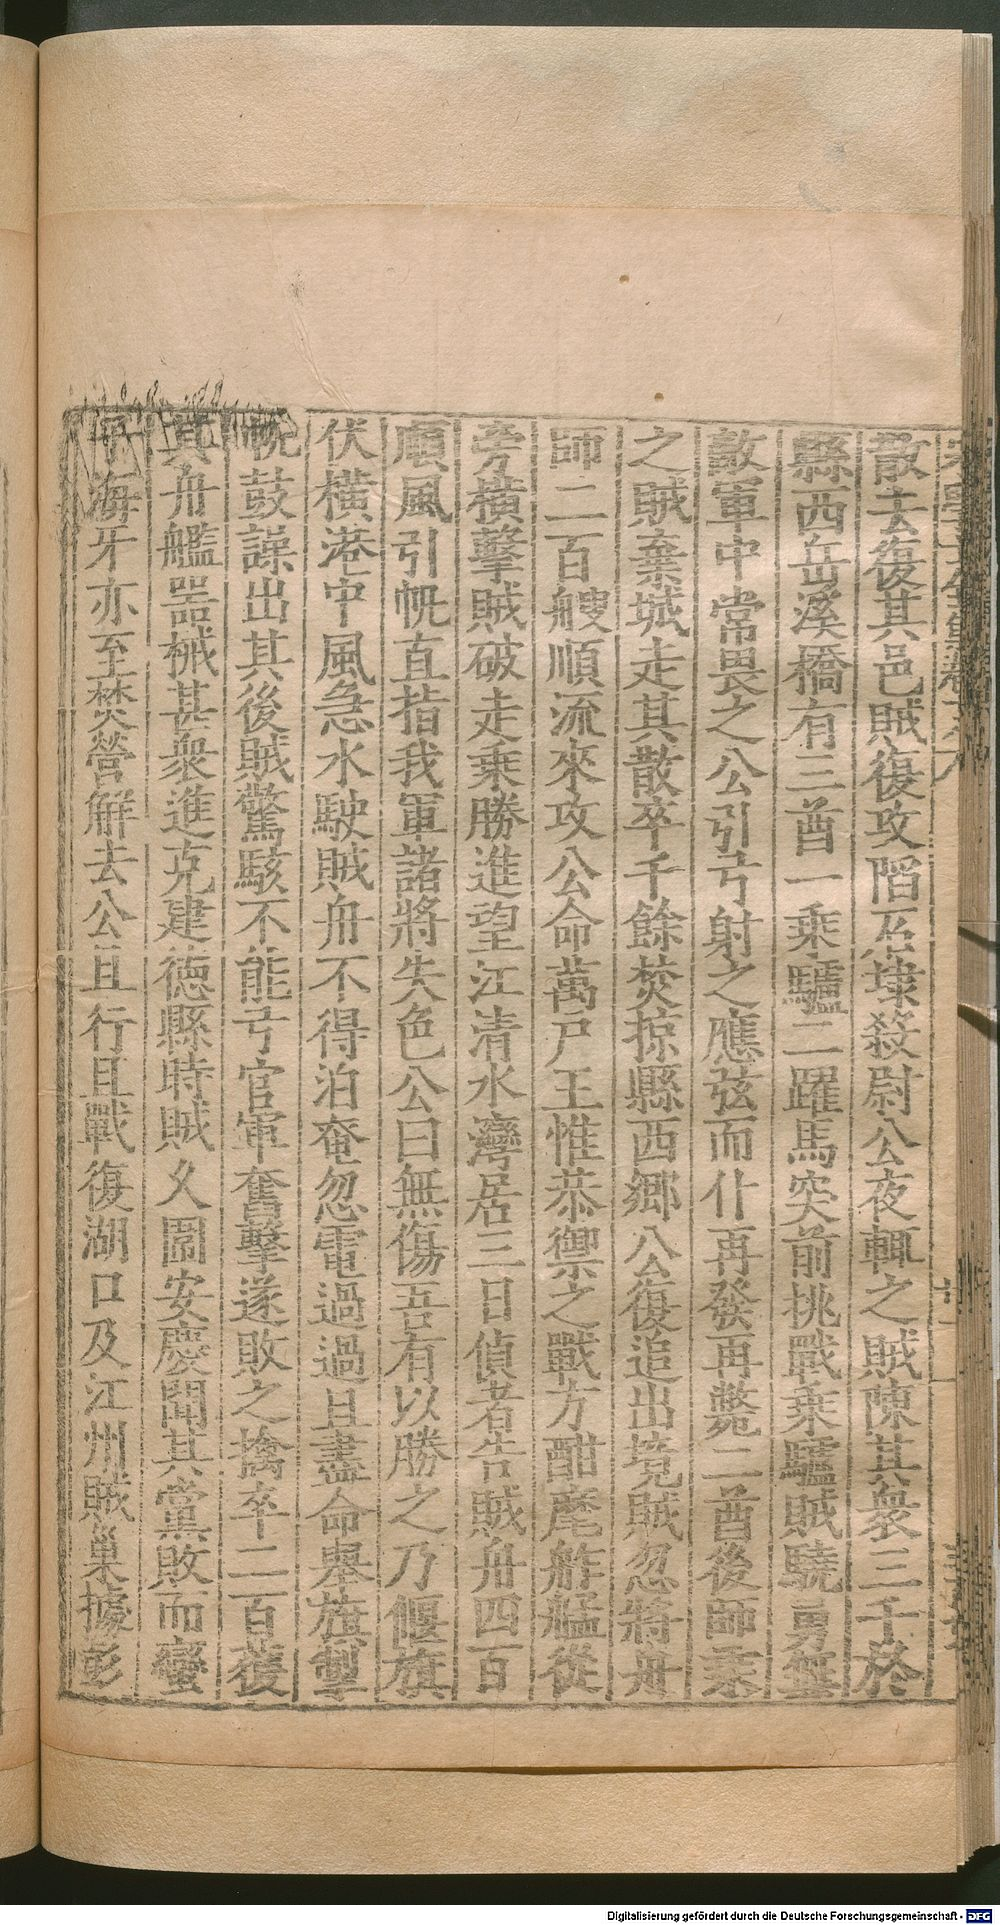 散去復其邑賊復攻陷石埭殺尉公夜輒之賊陳其衆三千於
縣西岳溪橋有三酋一乘驢二躍馬突前挑戰乘驢賊驍勇無
敵軍中常畏之公引弓射之應弦而仆再發再斃二酋後師乘
之賊棄城走其散卒千餘焚掠縣西鄉公復追出境賊忽將舟
師二百艘順流來攻公命萬戶王惟恭禦之戰方酣麾舴艋從
旁橫擊賊破走乘勝進望江清水灣居三日偵者告賊舟四百
順風引帆直指我軍諸將失色公曰無傷吾有以勝之乃偃旗
伏橫港中風急水駛賊舟不得泊奄忽電過過且盡命舉旗掣
帆鼓譟出其後賊驚駭不能弓官軍奮擊遂敗之擒卒二百獲
其舟艦器械甚衆進克建德縣時賊久圍安慶聞其黨敗而蠻
子海牙亦至焚營解去公且行且戰復湖口及江州賊巢據彭
Digitalisierung gefördert durch die Deutsche Forschungsgemeinschaft - DFG